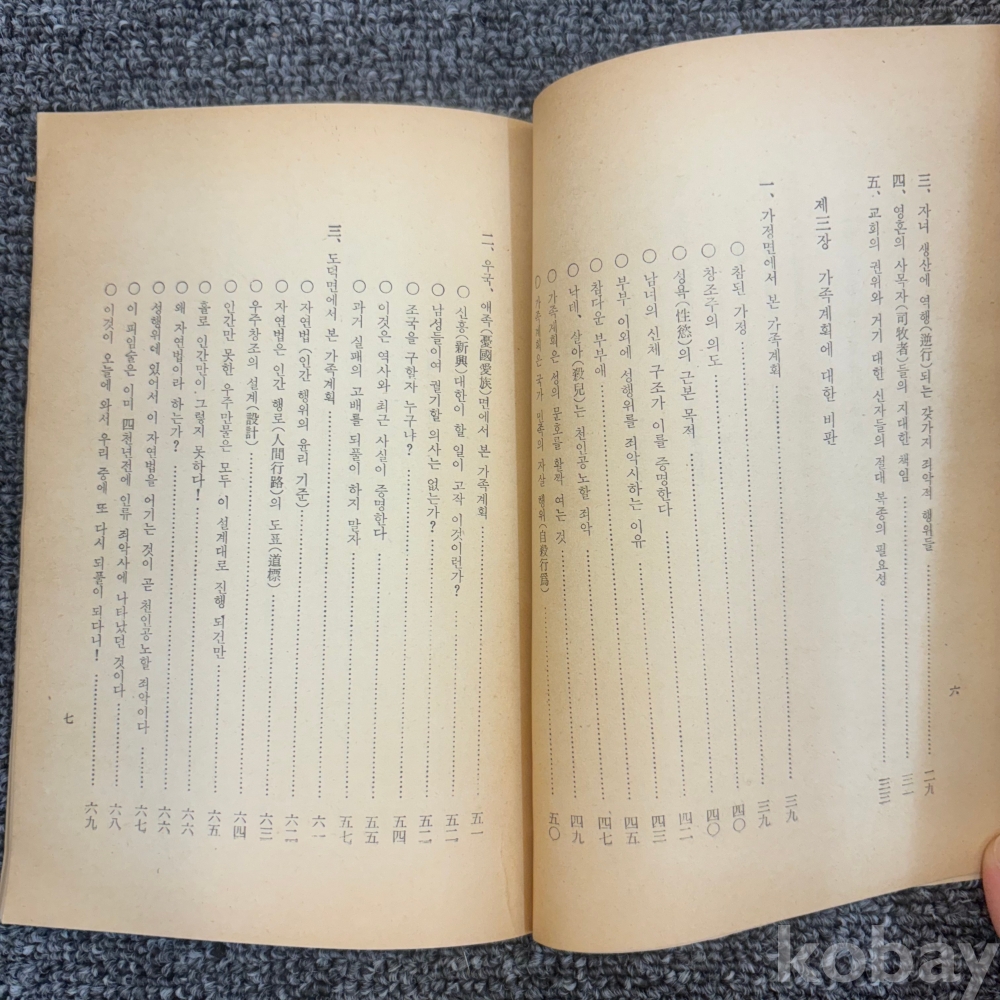 三、자녀 생산에 역행(逆行)되는 갖가지 죄악적 행위들……二九
四、영혼의 사목자(司牧者)들의 지대한 책임……三一
五、교회의 권위와 거기 대한 신자들의 절대 복종의 필요성……三三
제三장 가족계획에 대한 비판……三九
一、가정면에서 본 가족계획……三九
○ 참된 가정……四〇
○ 창조주의 의도……四〇
○ 성욕(性慾)의 근본 목적……四二
○ 남녀의 신체 구조가 이를 증명한다……四三
○ 부부 이외에 성행위를 죄악시하는 이유……四五
○ 참다운 부부애……四七
○ 낙태、살아(殺兒)는 천인공노할 죄악……四九
○ 가족계획은 성의 문호를 활짝 여는 것……五〇
○ 가족계획은 국가 민족의 자살 행위(自殺行爲)……
六
二、우국、애족(憂國愛族)면에서 본 가족계획……五一
○ 신흥(新興)대한이 할 일이 고작 이것이런가?……五二
○ 남성들이여 궐기할 의사는 없는가?……五二
○ 조국을 구할자 누구냐?……五四
○ 이것은 역사와 최근 사실이 증명한다……五五
○ 과거 실패의 고배를 되풀이 하지 말자……五七
三、도덕면에서 본 가족계획……六一
○ 자연법(인간 행위의 윤리 기준)……六二
○ 자연법은 인간 행로(人間行路)의 도표(道標)……六三
○ 우주창조의 설계(設計)……六四
○ 인간만 못한 우주만물은 모두 이 설계대로 진행 되건만……六五
○ 홀로 인간만이 그렇지 못하다!……六六
○ 왜 자연법이라 하는가?……六六
○ 성행위에 있어서 이 자연법을 어기는 것이 곧 천인공노할 죄악이다……六七
○ 이 피임술은 이미 四천년전에 인류 죄악사에 나타났던 것이다……六八
○ 이것이 오늘에 와서 우리 중에 또 다시 되풀이 되다니!……六九
七
kobay